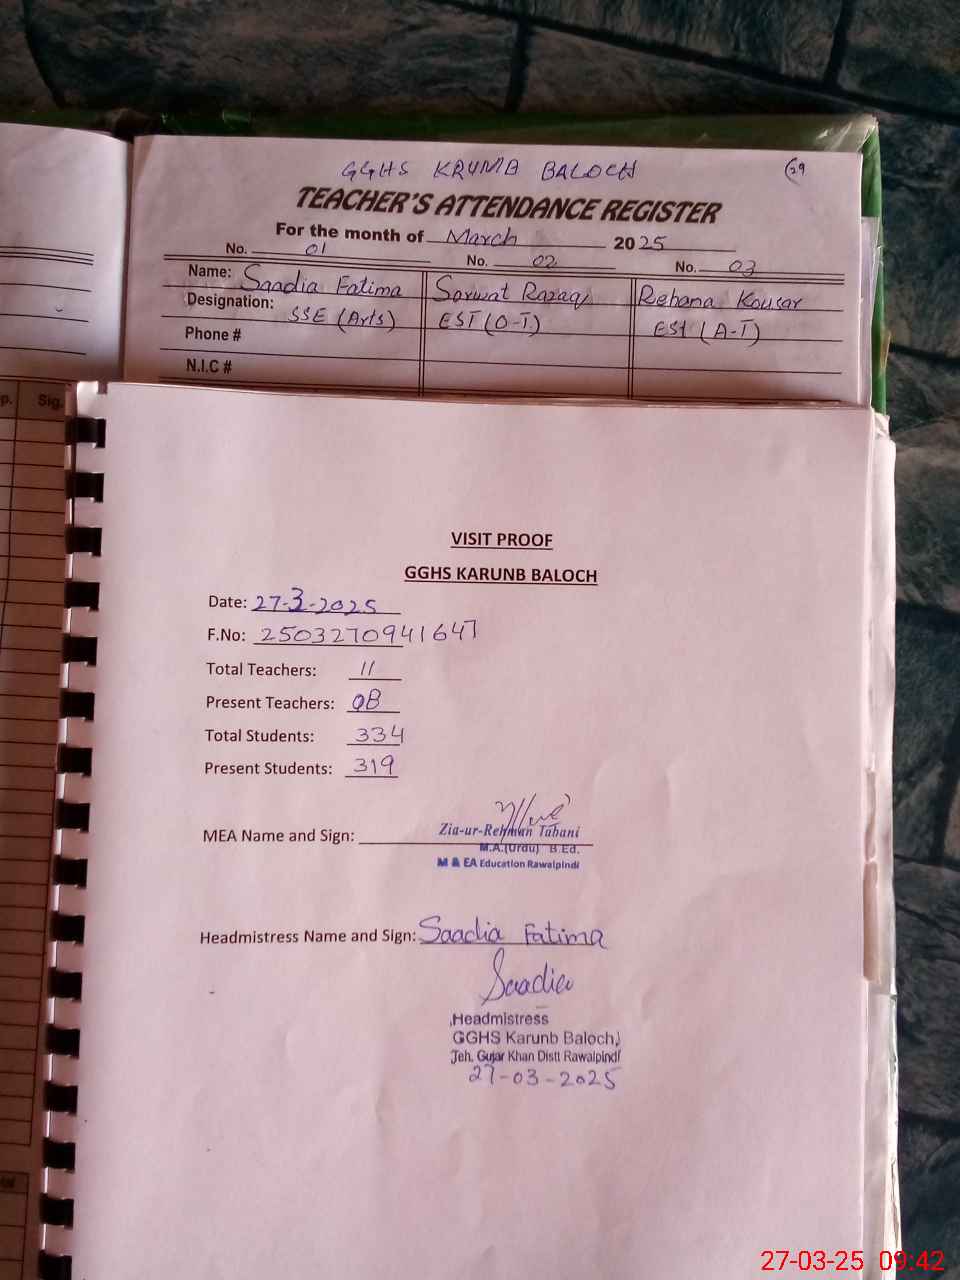 GGHS KRUMB BALOCH
29
TEACHER'S ATTENDANCE REGISTER
For the month of March 2025
No. 01 No. 02 No. 03
Name: Saadia Fatima Sarwat Razaq Rehana Kousar
Designation: SSE (Arts) EST (O-T) EST (A-T)
Phone #
N.I.C #
p. Sig.
VISIT PROOF
GGHS KARUNB BALOCH
Date: 27-3-2025
F.No: 2503270941647
Total Teachers: 11
Present Teachers: 08
Total Students: 334
Present Students: 319
MEA Name and Sign:
Zia-ur-Rehman Tabani
M.A.(Urdu) B.Ed.
M & EA Education Rawalpindi
Headmistress Name and Sign: Saadia Fatima
Saadia
Headmistress
GGHS Karunb Baloch
Teh. Gujar Khan Distt Rawalpindi
27-03-2025
27-03-25 09:42